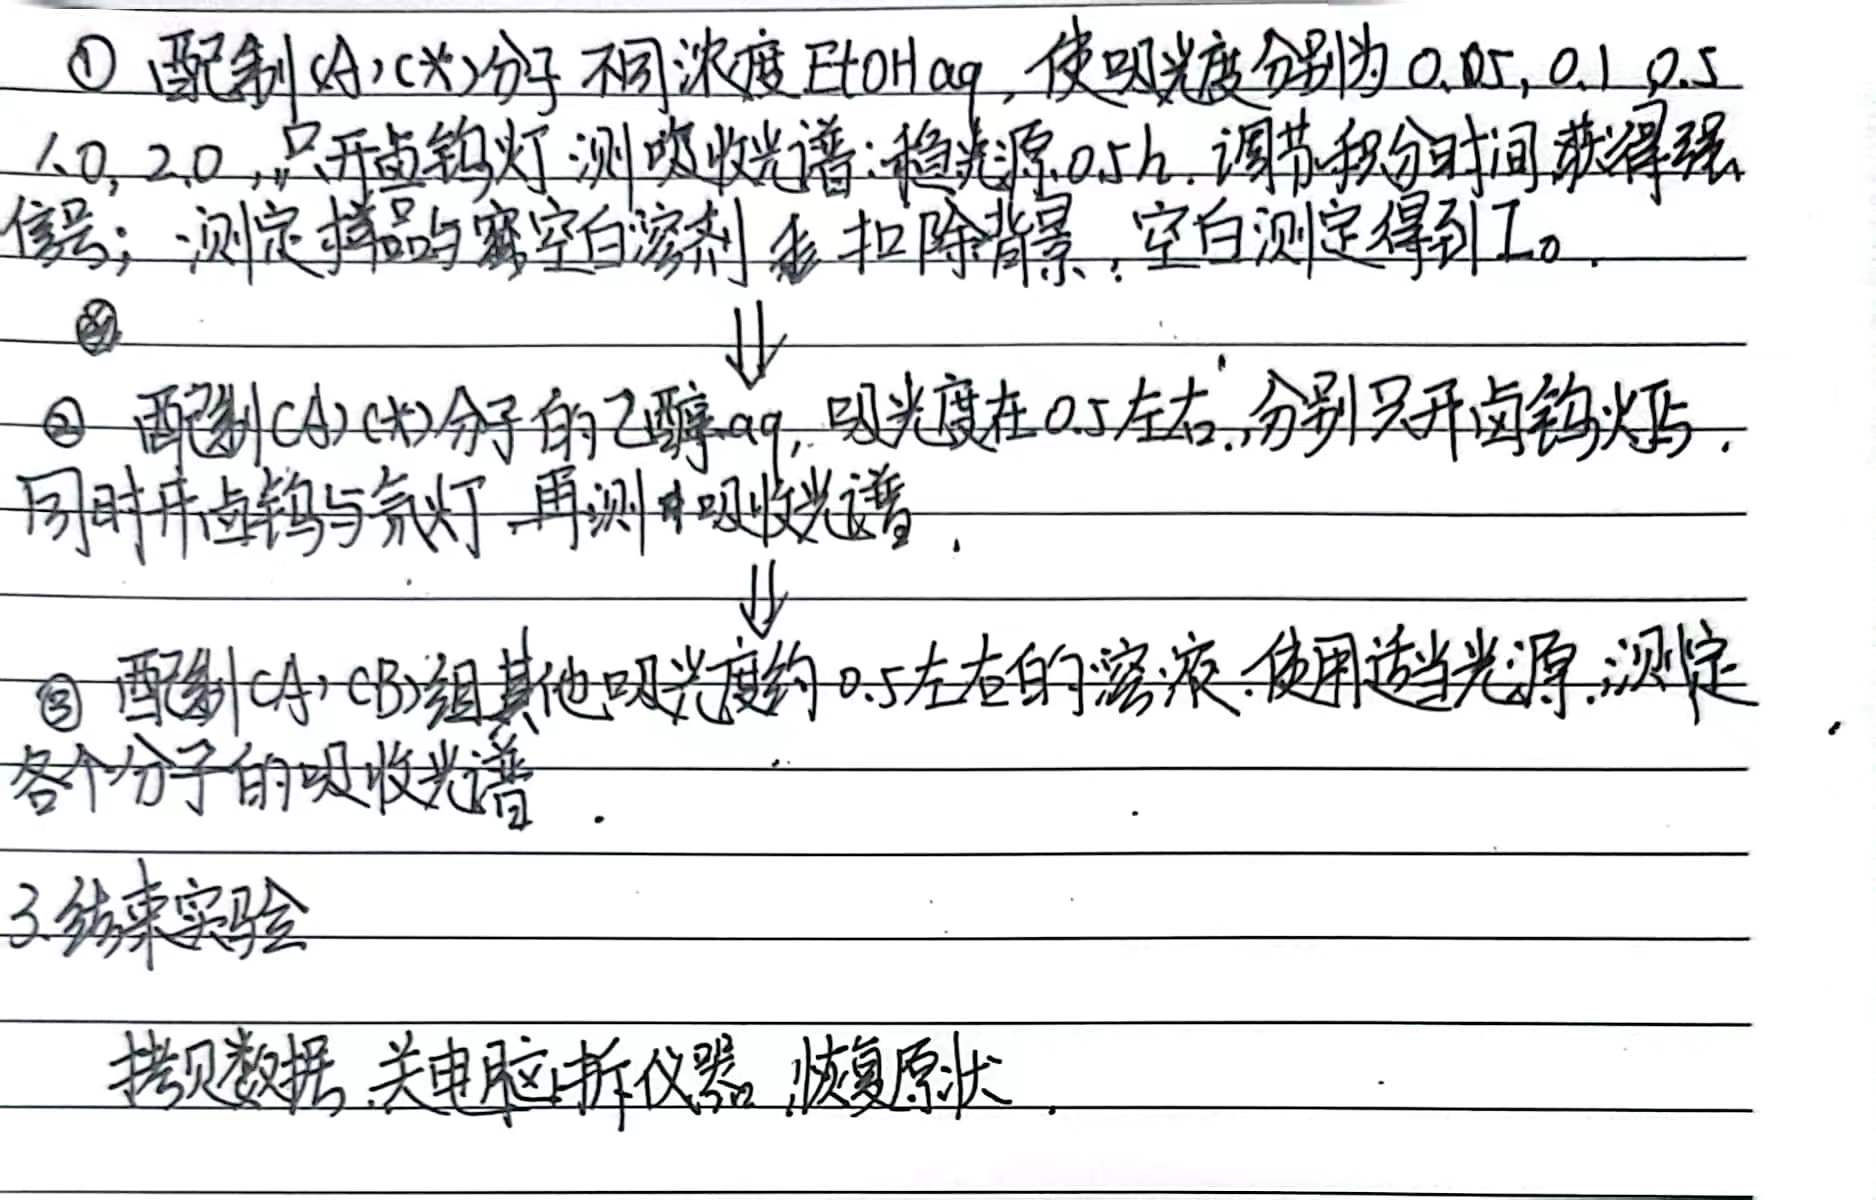 ① 配制(A)(*)分子不同浓度EtOH aq, 使吸光度分别为0.05, 0.1, 0.5
1.0, 2.0, 只开卤钨灯测吸收光谱: 稳光源0.5h. 调节积分时间获得强
信号; 测定样品与空白溶剂扣除背景, 空白测定得到I₀.
②
⇓
② 配制(A)(*)分子的乙醇aq, 吸光度在0.5左右, 分别只开卤钨灯与
同时开卤钨与氘灯, 再测吸收光谱.
⇓
③ 配制(A)(B)组其他吸光度约0.5左右的溶液, 使用适当光源, 测定
各个分子的吸收光谱.
3.结束实验
拷贝数据, 关电脑, 拆仪器, 恢复原状.